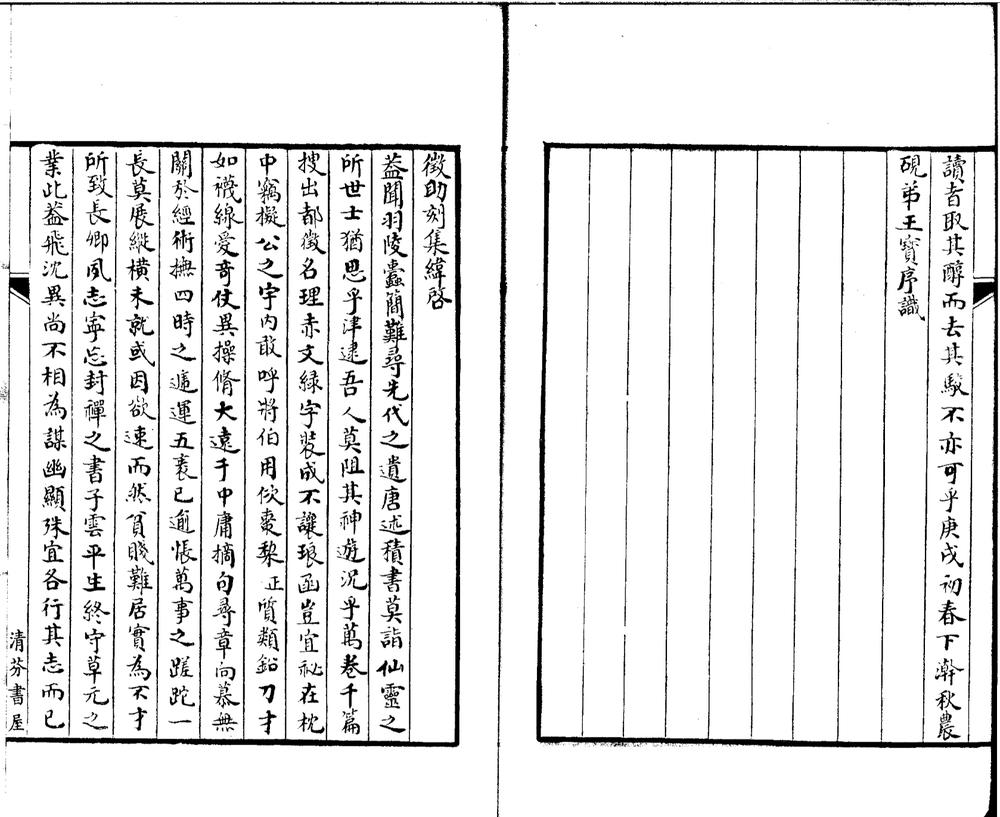 讀者取其醇而去其駁不亦可乎庚戌初春下澣秋農
硯弟王寳序識
徵助刻集緯啓
葢聞羽陵蠹簡難尋先代之遺唐述積書莫詣仙靈之
所世士猶思乎津逮吾人莫阻其神遊況乎萬卷千篇
搜出都徵名理赤文緑字裝成不讓琅函豈宜祕在枕
中竊擬公之宇內敢呼將伯用佽棗棃 质類鉛刀才
如襪線愛奇仗異操脩大遠于中庸摘句尋章向慕無
關於經術撫四時之遞運五袠已逾悵萬事之蹉跎一
長莫展縱橫未就或因欲速而然貧賤難居實為不才
所致長卿夙志寧忘封禪之書子雲平生終守草元之
業此葢飛沈異尚不相為謀幽顯殊宜各行其志而已
清芬書屋